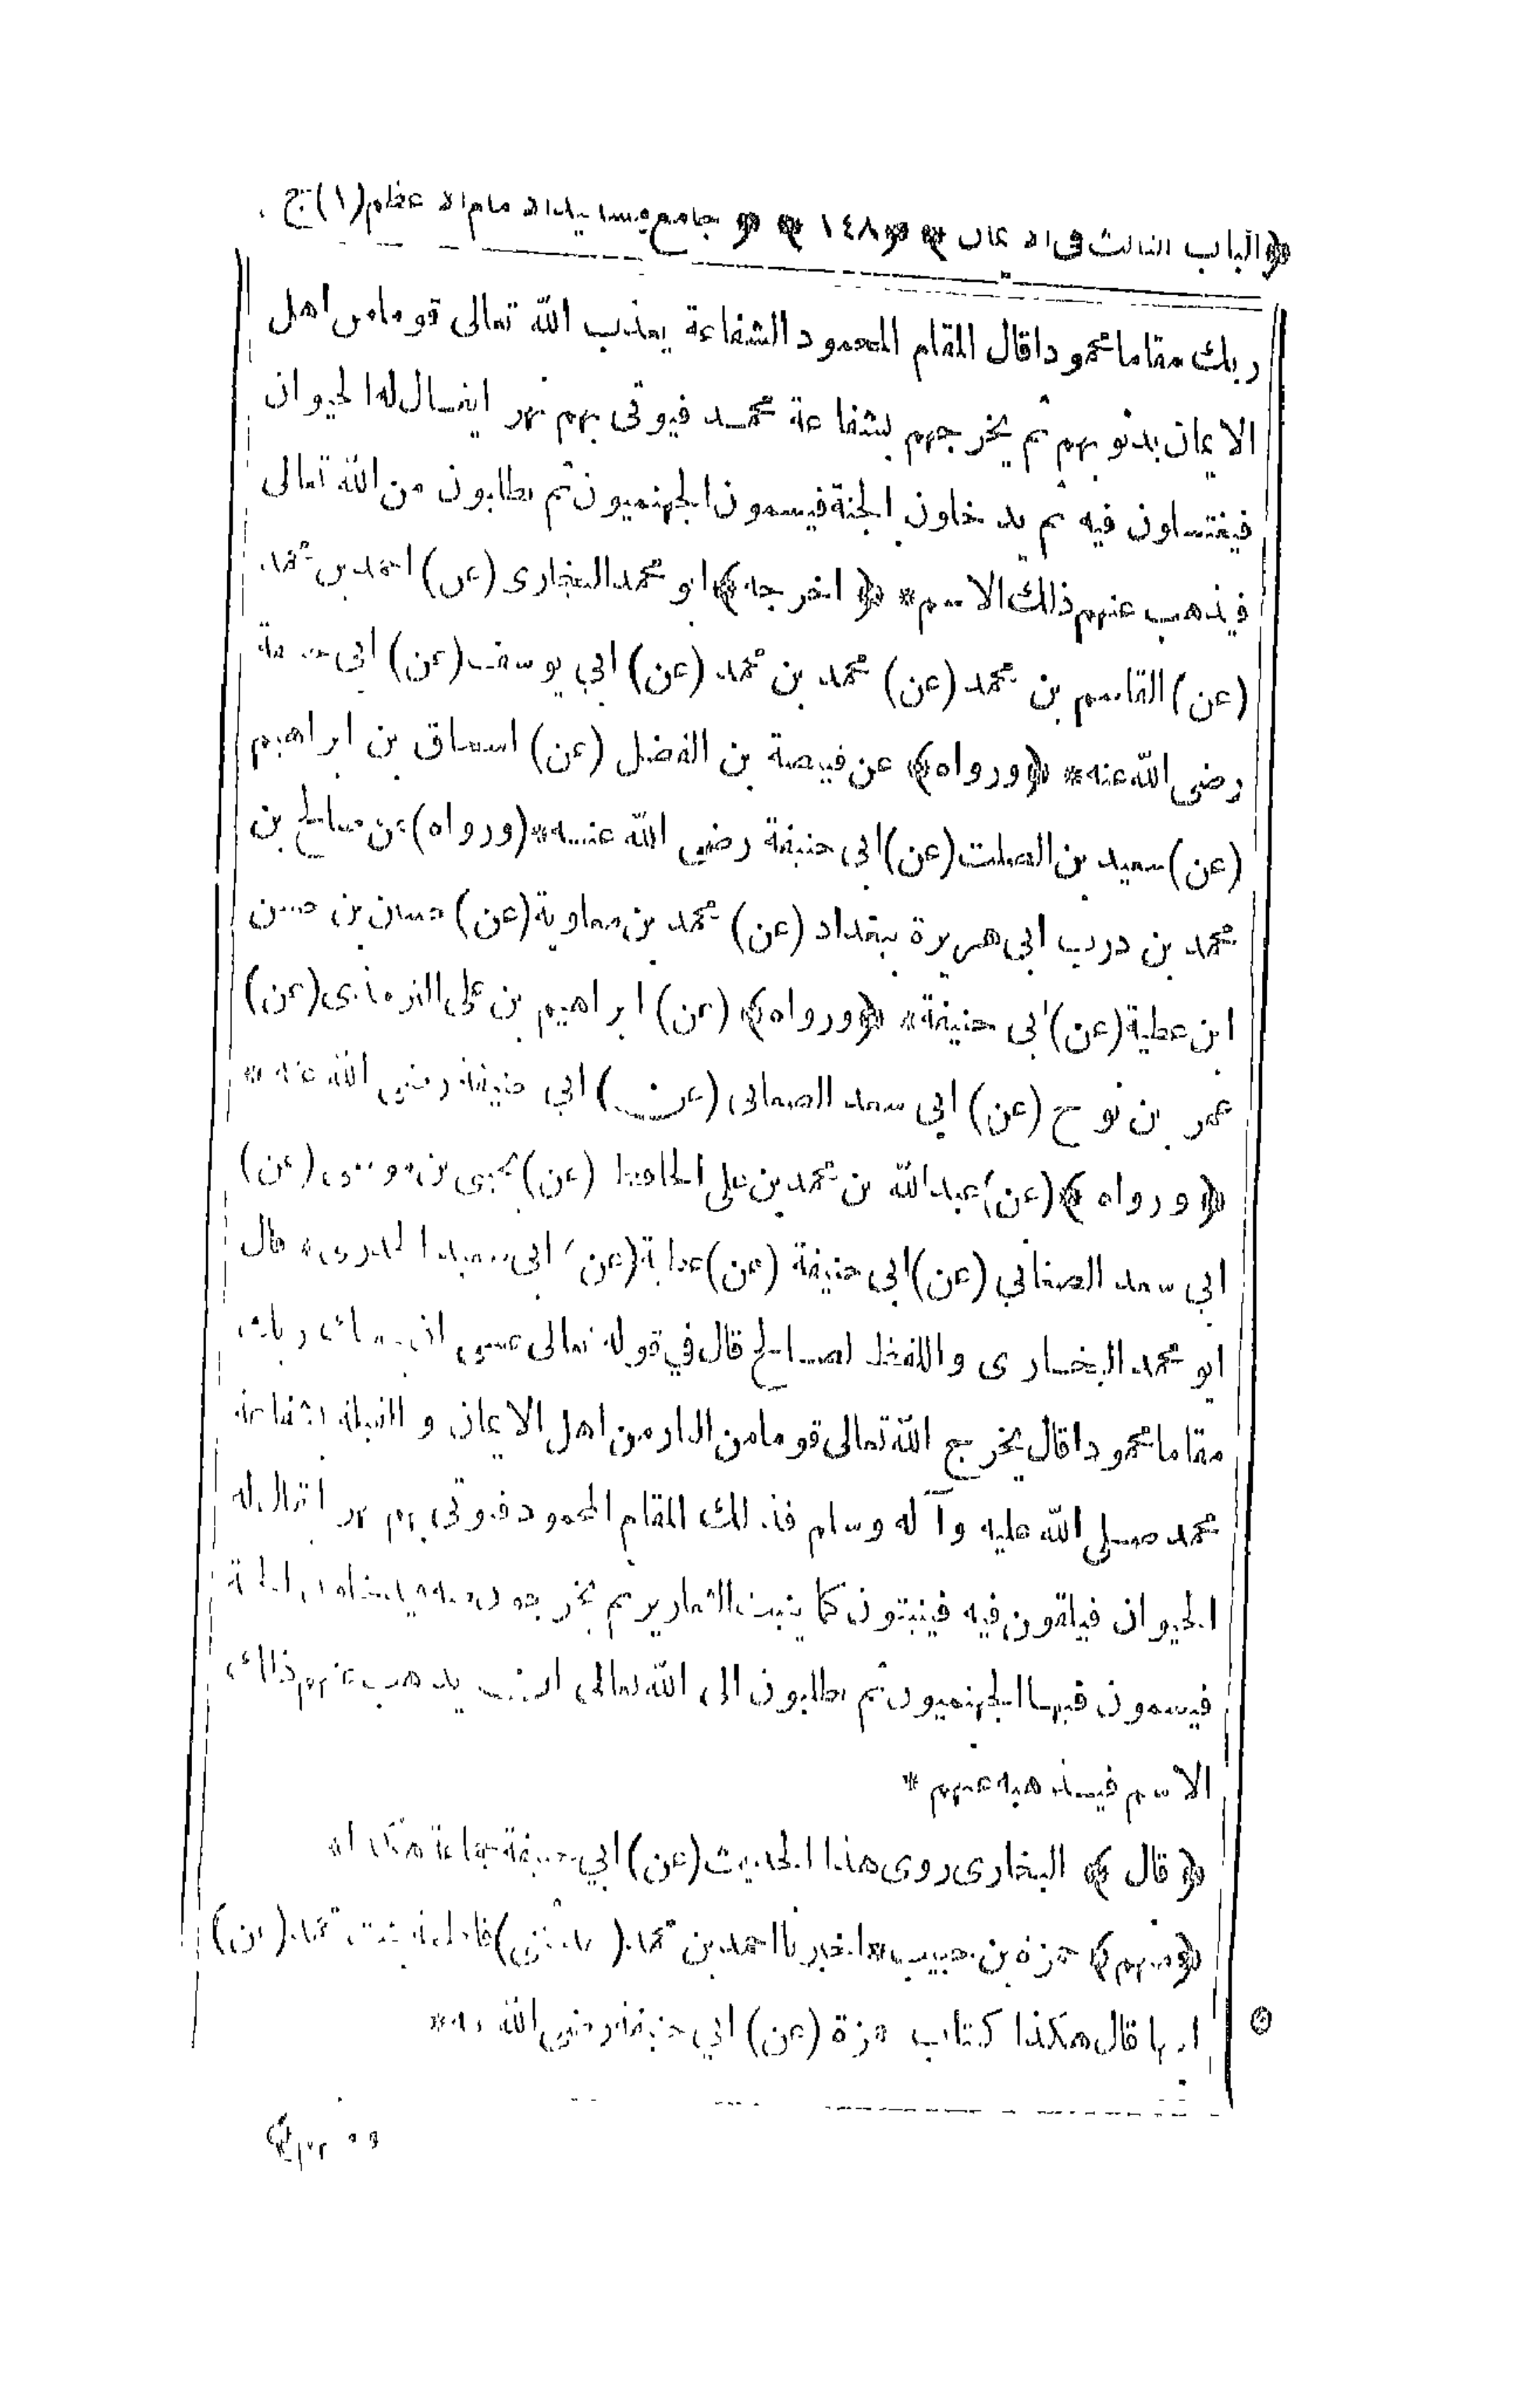 ﴿الباب الثالث فى الايمان﴾ ﴿١٤٨﴾ ﴿جامع مسانيد الامام الاعظم (١) ج
ربك مقاما محمودا قال المقام المحمود الشفاعة يعذب الله تعالى قوما من اهل
الايمان بذنوبهم ثم يخرجهم بشفاعة محمد فيوتى بهم نهر ايقال له الحيوان
فيغتسلون فيه ثم يدخلون الجنة فيسمون الجهنميون ثم يطلبون من الله تعالى
فيذهب عنهم ذلك الاسم* ﴿اخرجه﴾ ابو محمد البخارى (عن) احمد بن محمد
(عن) القاسم بن محمد (عن) محمد بن محمد (عن) ابي يوسف (عن) ابى حنيفة
رضى الله عنه* ﴿ورواه﴾ عن قبيصة بن الفضل (عن) اسحاق بن ابراهيم
(عن) سعيد بن الصلت (عن) ابى حنيفة رضى الله عنه* (ورواه) عن صالح بن
محمد بن درب ابى هريرة ببغداد (عن) محمد بن معاوية (عن) حسان بن حسن
ابن عطية (عن) ابى حنيفة* ﴿ورواه﴾ (عن) ابراهيم بن على الترمذى (عن)
عمر بن نوح (عن) ابى سعد الصغانى (عن) ابي حنيفة رضى الله عنه*
﴿ورواه﴾ (عن) عبد الله بن محمد بن على الحافظ (عن) يحيى بن موسى (عن)
ابي سعد الصغاني (عن) ابى حنيفة (عن) عطية (عن) ابى سعيد الخدرى* قال
ابو محمد البخارى واللفظ لصالح قال في قوله تعالى عسى ان يبعثك ربك
مقاما محمودا قال يخرج الله تعالى قوما من النار من اهل الايمان و القبلة بشفاعة
محمد صلى الله عليه وآله وسلم فذلك المقام المحمود فيوتى بهم نهر ايقال له
الحيوان فيلقون فيه فينبتون كما ينبت الثعارير ثم يخرجون منه ويدخلون الجنة
فيسمون فيها الجهنميون ثم يطلبون الى الله تعالى ان يذهب عنهم ذلك
الاسم فيذهبه عنهم*
﴿قال﴾ البخارى روى هذا الحديث (عن) ابي حنيفة جماعة هكذا*
﴿منهم﴾ حمزة بن حبيب* اخبرنا احمد بن محمد (حدثتنى) فاطمة بنت محمد (عن)
ابيها قال هكذا كتاب حمزة (عن) ابي حنيفة رضى الله عنه*